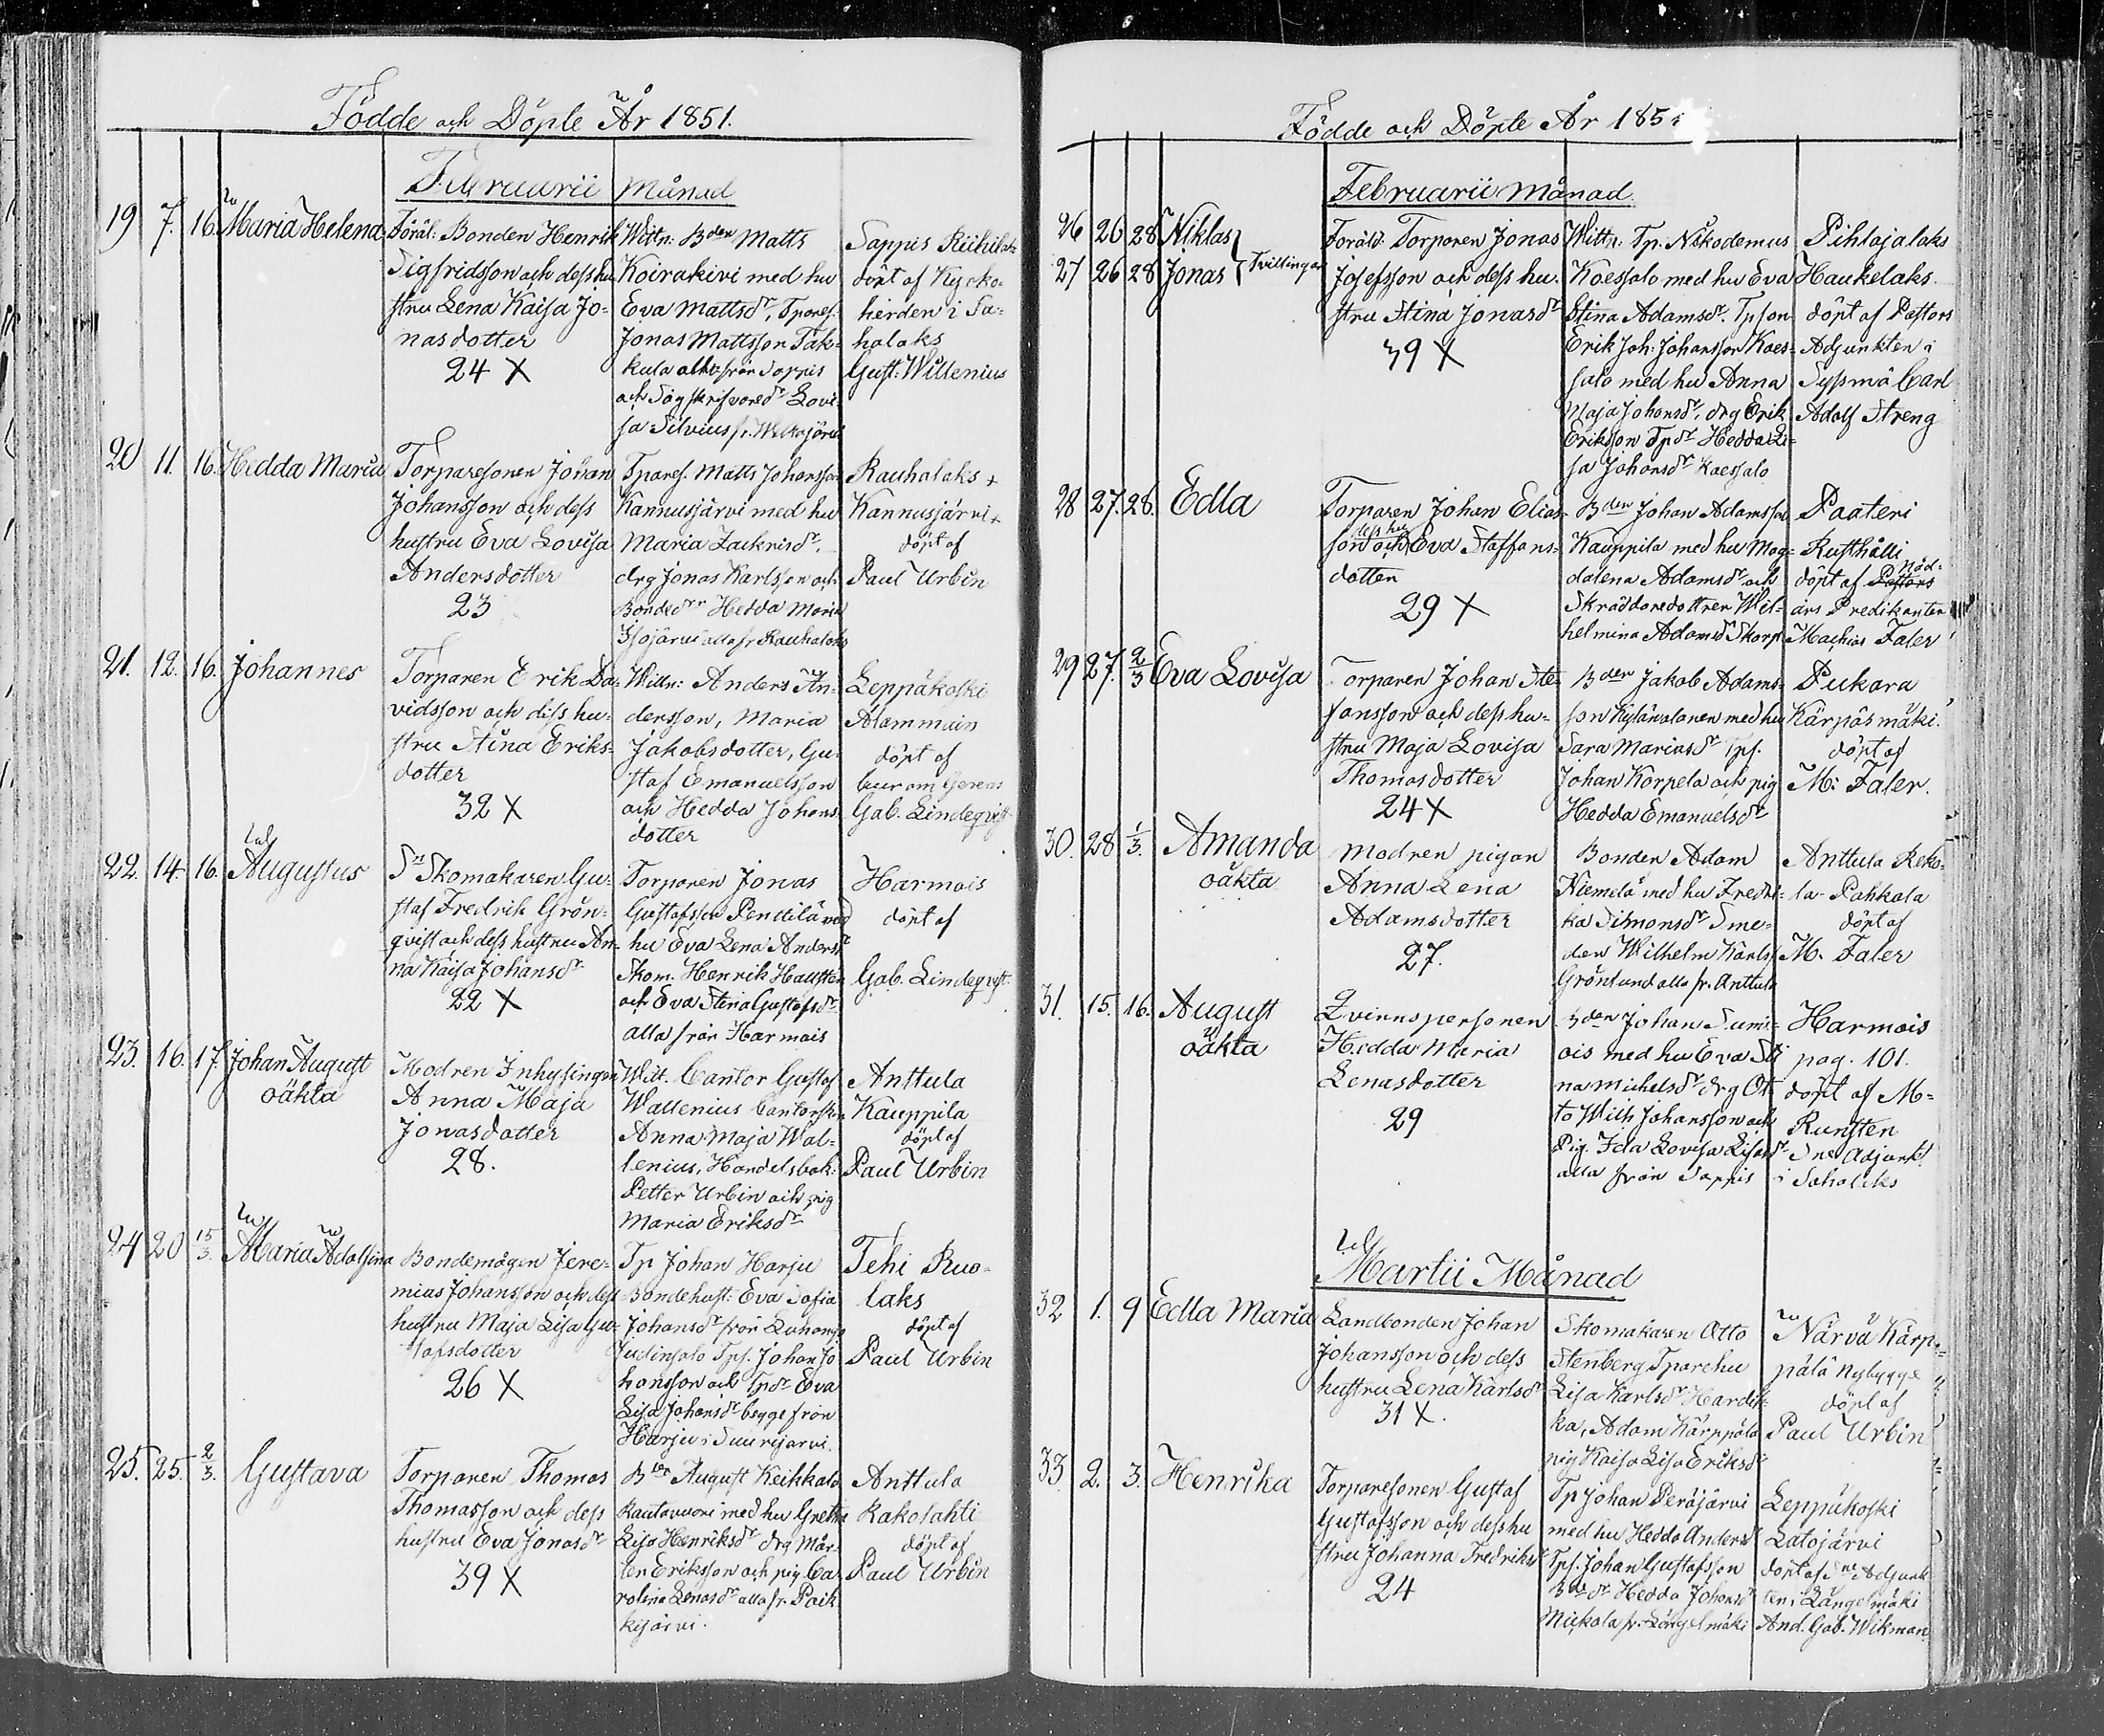 Födde och Döpte År 1851.
Februarii Månad
19 7. 16. Maria Helena
Föräl: Bonden Henrik
Sigfridsson och dess hu
stru Lena Kaisa Jo-
nasdotter
24 X
Wittn: Bden Matts
Koirakivi med hu
Eva Mattsdr, Tpares.
Jonas Mattsson Tak-
kula alla från Sappis
och Sågskrifvaredr Lovi-
sa Silvius
Sappis
döpt af Kyrko-
herden i Sa-
halaks
Gust: Willenius
20 11. 16. Hedda Maria
Torparesonen Johan
Johansson och dess
hustru Eva Lovisa
Andersdotter
23
Tpares. Matts Johansson
Kannusjärvi med hu
Maria Zackrisdr.
drg Jonas Karlsson och
Bondedr Hedda Maria
Isojärvi alla fr Rauhalaks
Rauhalaks +
Kannusjärvi +
döpt af
Paul Urbin
21. 12. 16. Johannes
Torparen Erik Da-
vidsson och dess hu-
stru Stina Eriks-
dotter
32 X
Wittn: Anders An-
dersson, Maria
Jakobsdotter, Gu-
staf Emanuelsson
och Hedda Johans
dotter
Leppäkoski
Alammain
döpt af
Gab. Lindeqvist
22. 14. 16. Augustus
Sn Skomakaren Gu-
staf Fredrik Grön-
qvist och dess hustru An-
na Kaisa Johansdr
22 X
Torparen Jonas
Gustafsson Penttilä med
hu Eva Lena Andersdr
Skom. Henrik
och Eva Stina Gustafsdr
alla från Harmois
Harmois
döpt af
Gab. Lindeqvist
23. 16. 17. Johan August
oäkta
Modren Inhysingen
Anna Maja
Jonasdotter
28.
Witt. Cantor Gustaf
Wallenius Cantorskan
Anna Maja Wal-
lenius, Handelsbok.
Petter Urbin och pig
Maria Eriksdr
Anttula
Kauppila
döpt af
Paul Urbin
24 20 15/3. Maria Adolfina
Bondemågen Jere-
mias Johansson och dess
hustru Maja Lisa Gu-
stafsdotter
26 X
Tp Johan Harju
Bondehust: Eva Sofia
Johansdr från Luhanga
Judinsalo Tps. Johan Jo
hansson och Tpdr Eva
Lisa Johansdr begge från
Harju i Suurijärvi.
Tehi Ruo-
laks
döpt af
Paul Urbin
25. 25. 2/3. Gustava
Torparen Thomas
Thomasson och dess
hustru Eva Jonasdr
39 X
Bden August Keihkala
Rautavuori med hu Gretha
Lisa Henriksdr drg Mår-
ten Eriksson och pig Ca
rolina Lenasdr alla fr. Paik
kijärvi.
Anttula
Kakolahti
döpt af
Paul Urbin
Födde och Döpte År 185
Februarii Månad
26 26 28 Niklas
27 26 28 Jonas } Tvillingar
Föräld: Torparen Jonas
Josefsson och dess hu.
stru Stina Jonasdr
39 X
Wittn: Tp. Nikodemus
Koessalo med hu Eva
Stina Adamsdr. Tpson
Erik Joh: Johansson Koes-
salo med hu Anna
Maja Johansdr, drg Erik
Eriksson Tpdr Hedda Li-
sa Johansdr Koessalo
Pihlajalaks
Haukelaks.
döpt af Pastors
Adjunkten i
Sysmä Carl
Adolf Streng
28 27. 28. Edla
Torparen Johan Elias-
dess hu
son och Eva Staffans-
dotter
29 X
Bden Johan Adamsson
Kauppila med hu Mag-
dalena Adamsdr och
Skräddaredottren Wil-
helmina Adamsdr Skorp
Paateri
Rusthålli
döpt af Pastors Nöd-
års Predikanten
Machias Faler
29 27. 2/3 Eva Lovisa
Torparen Johan Ste-
fansson och dess hu-
stru Maja Lovisa
Thomasdotter
24 X
Bden Jakob Adams-
son Kylänalanen med hu
Sara Mariasdr Tps.
Johan Korpela och pig
Hedda Emanuelsdr
Pukara
Kärpäsmäki.
döpt af
M: Faler.
30. 28 1/3. Amanda
oäkta
Modren pigan
Anna Lena
Adamsdotter
27.
Bonden Adam
Niemelä med hu Fredri-
ka Simonsdr Sme-
den Wilhelm Karls
Grönlund alla fr. Anttula
Anttula Reko-
la - Pahkala
döpt af
M. Faler
31. 15. 16. August
oäkta
Qvinnspersonen
Hedda Maria
Lenasdotter
29
Bden Johan Sumi-
ois med hu Eva Sti
na Michelsdr drg Ot-
to Wilh Johansson och
Pig. Ida Lovisa Lisasdr
alla från Sappis
Harmois
pag. 101.
döpt af M-
Runsten
Sne Adjunkt
i Sahalaks
Martii Månad
32 1. 9 Edla Maria
Landbonden Johan
Johansson och dess
hustru Lena Karlsdr
31 X.
Skomakaren Otto
Stenberg Tparehu
Lisa Karlsdr Hardik-
ka, Adam Kärppälä
pig Kaisa Lisa Eriksdr
Närvä Kärp-
pälä nybygge
döpt af
Paul Urbin
33 2. 3. Henrika
Torparesonen Gustaf
Gustafsson och dess hu
stru Johanna Fredriksdr
24
Tp Johan Peräjärvi
med hu Hedda Andersdr
Tps. Johan Gustafsson
Bdedr Hedda Johansdr
Mickola fr. Längelmäki
Leppäkoski
Latojärvi
döpt af Sne Adjunk
ten i Längelmäki
And. Gab. Wikman